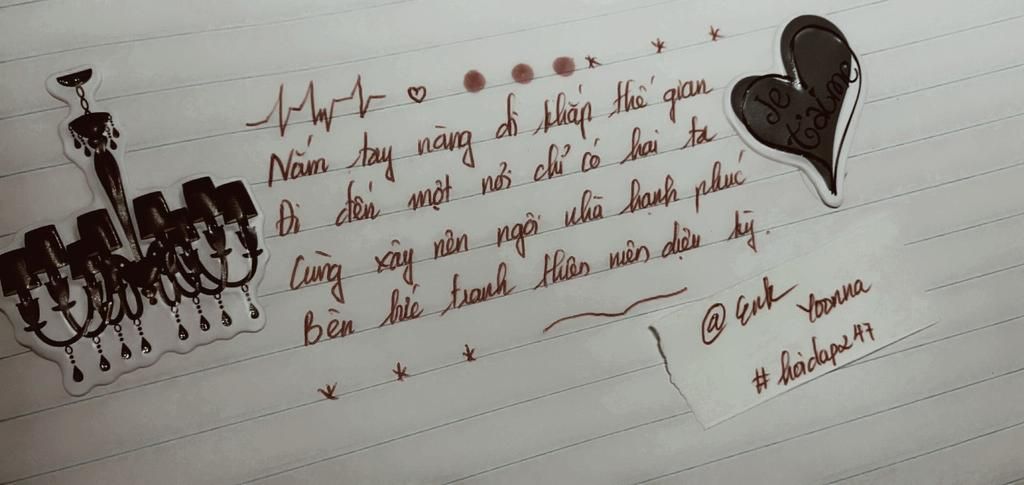 Nắm tay nàng đi khắp thế gian
Đi đến một nơi chỉ có hai ta
Cùng xây nên ngôi nhà hạnh phúc
Bên bức tranh thiên niên diệu kỳ.
Je t'aime
@ Gnk Yoonna
#hoidap247